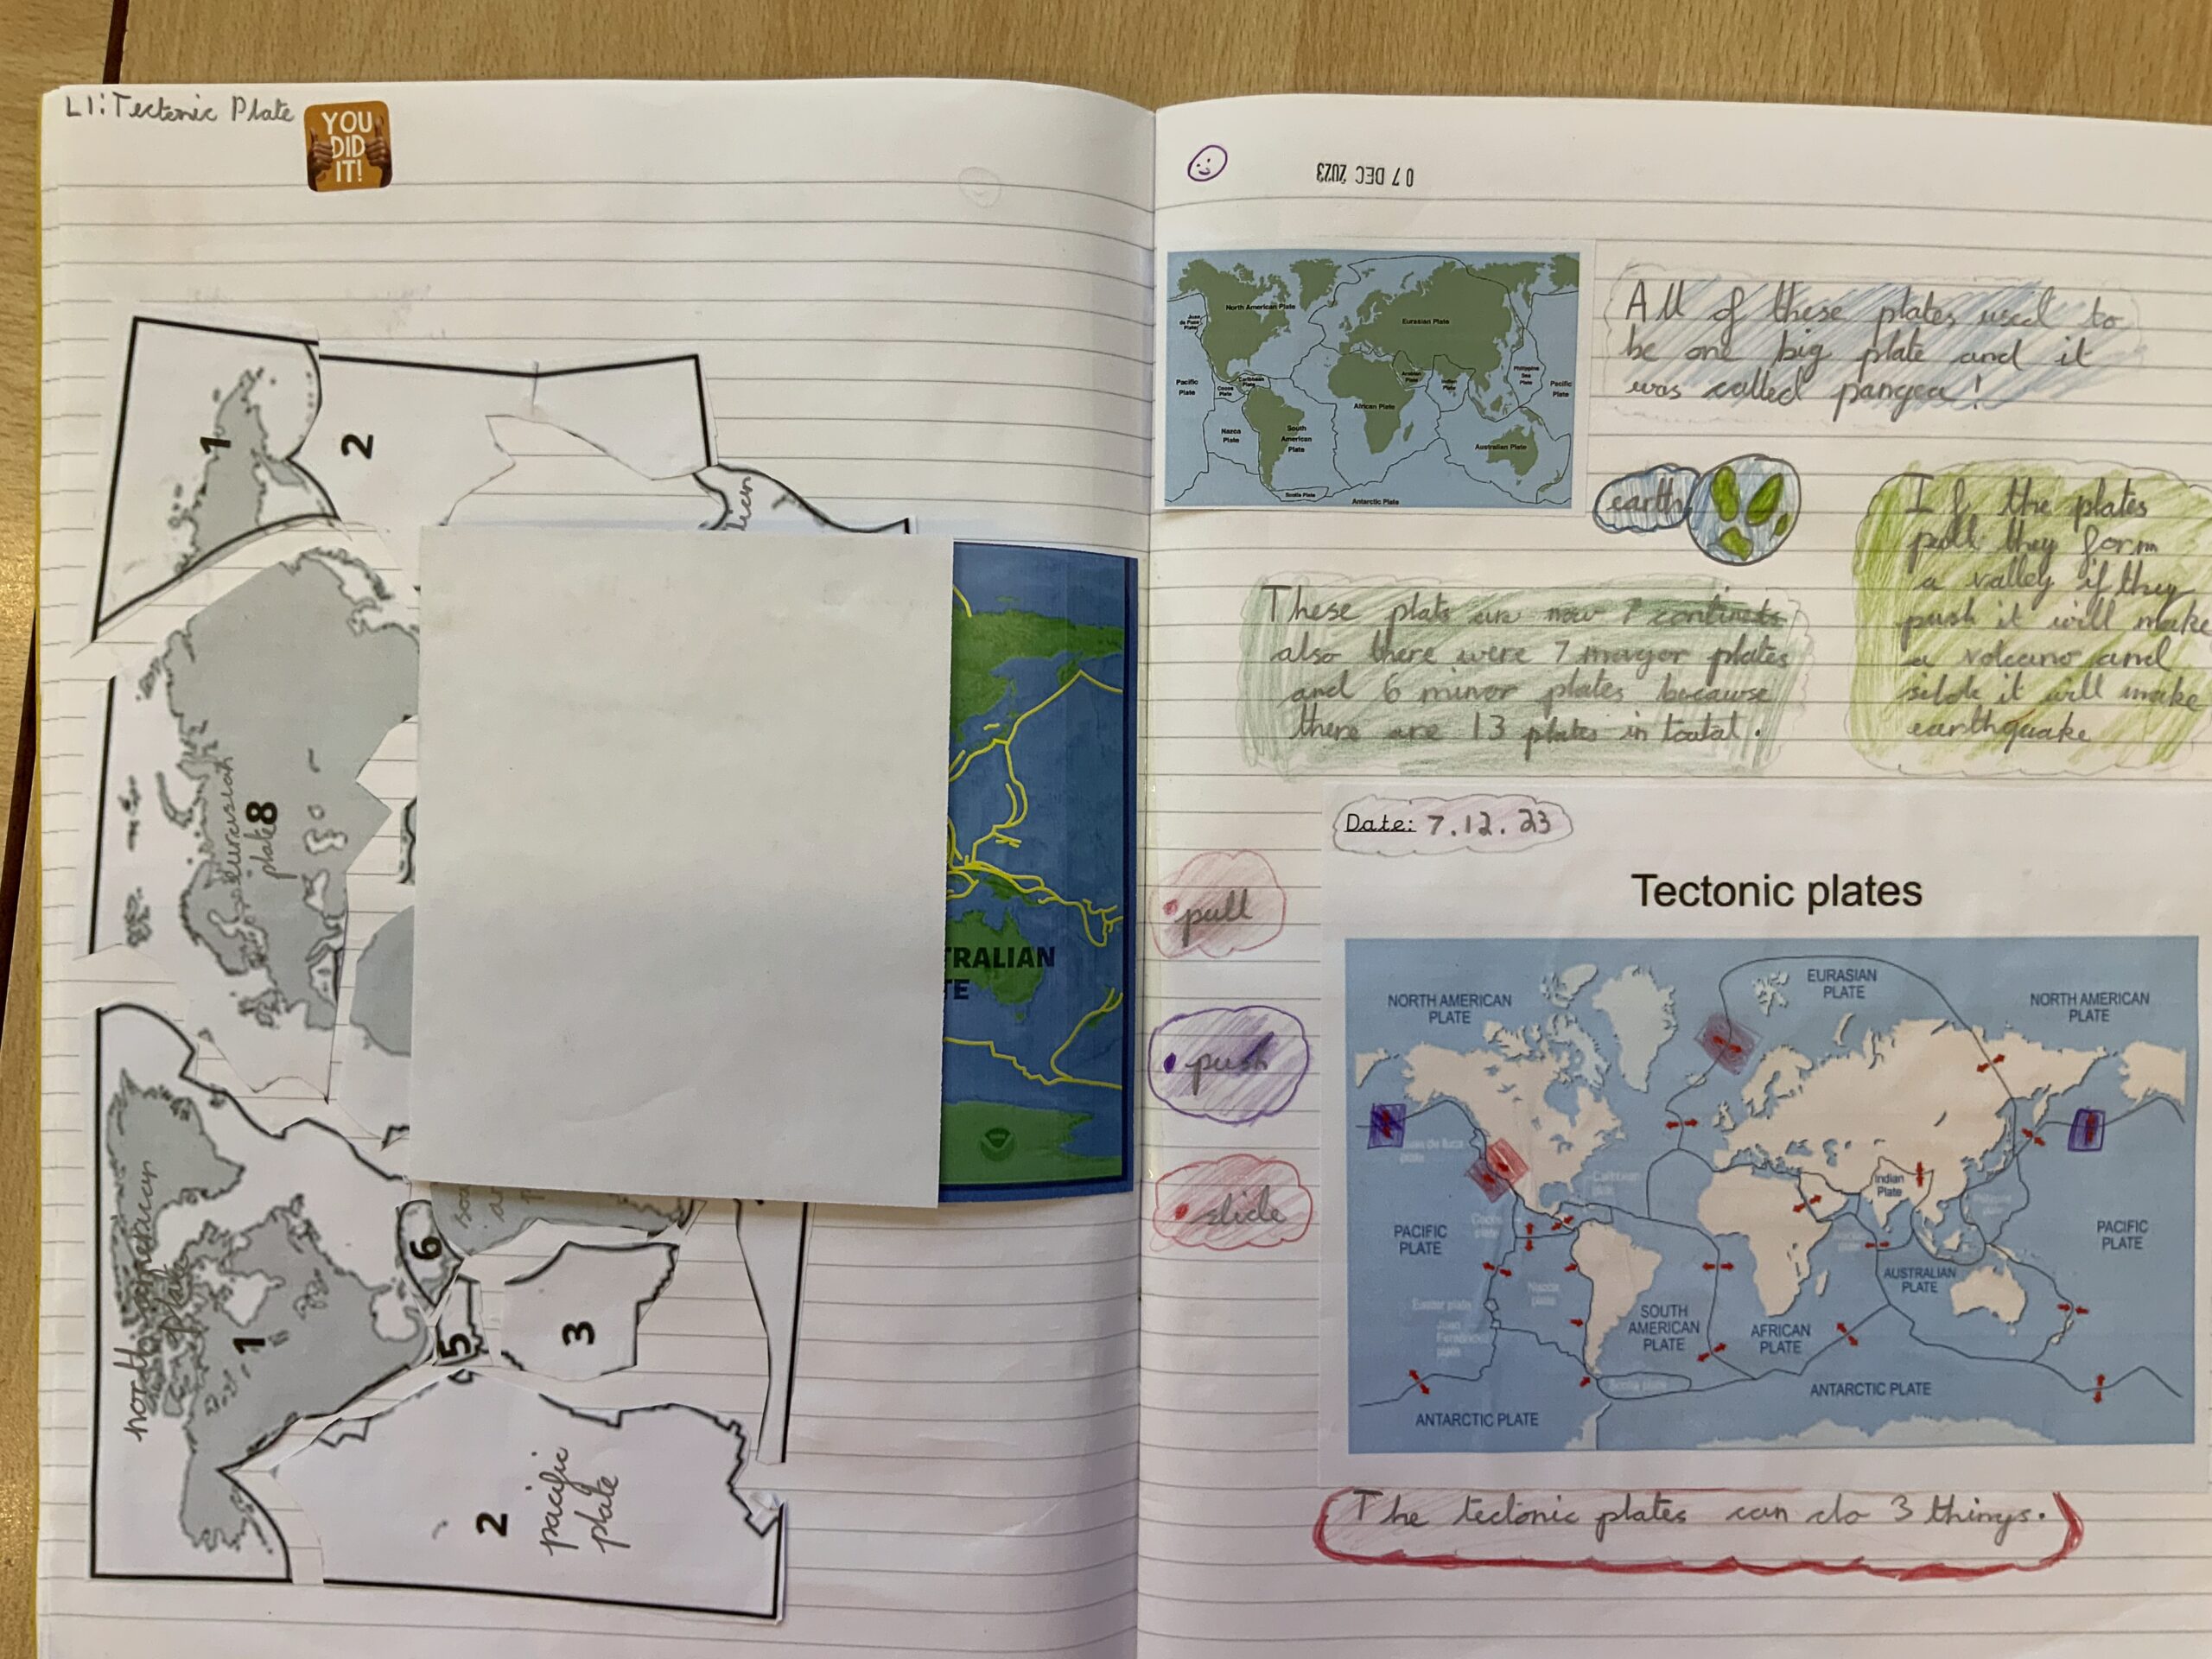 L1: Tectonic Plate
YOU
DID
IT!
1
2
eurasian
plate
8
north american
plate
1
6
5
3
2
pacific
plate
TRALIAN
TE
07 DEC 2023
North American Plate
Eurasian Plate
Juan
de Fuca
Plate
Pacific
Plate
Cocos
Plate
Caribbean
Plate
Arabian
Plate
Indian
Plate
Philippine
Sea
Plate
Pacific
Plate
African Plate
Nazca
Plate
South
American
Plate
Australian Plate
Scotia Plate
Antarctic Plate
All of these plates used to
be one big plate and it
was called pangea!
earth
If the plates
pull they form
a valley if they
push it will make
a volcano and
it will make
earthquake
These plats are now 7 continets
also there were 7 mayor plates
and 6 minor plates because
there are 13 plates in toatal.
Date: 7.12.23
pull
push
slide
Tectonic plates
NORTH AMERICAN
PLATE
EURASIAN
PLATE
NORTH AMERICAN
PLATE
Juan de fuca
plate
Caribbean
plate
Indian
Plate
PACIFIC
PLATE
Cocos
plate
PACIFIC
PLATE
Nazca
plate
AUSTRALIAN
PLATE
Easter plate
Juan
Fernandez
plate
SOUTH
AMERICAN
PLATE
AFRICAN
PLATE
Scotia plate
ANTARCTIC PLATE
ANTARCTIC PLATE
The tectonic plates can do 3 things.